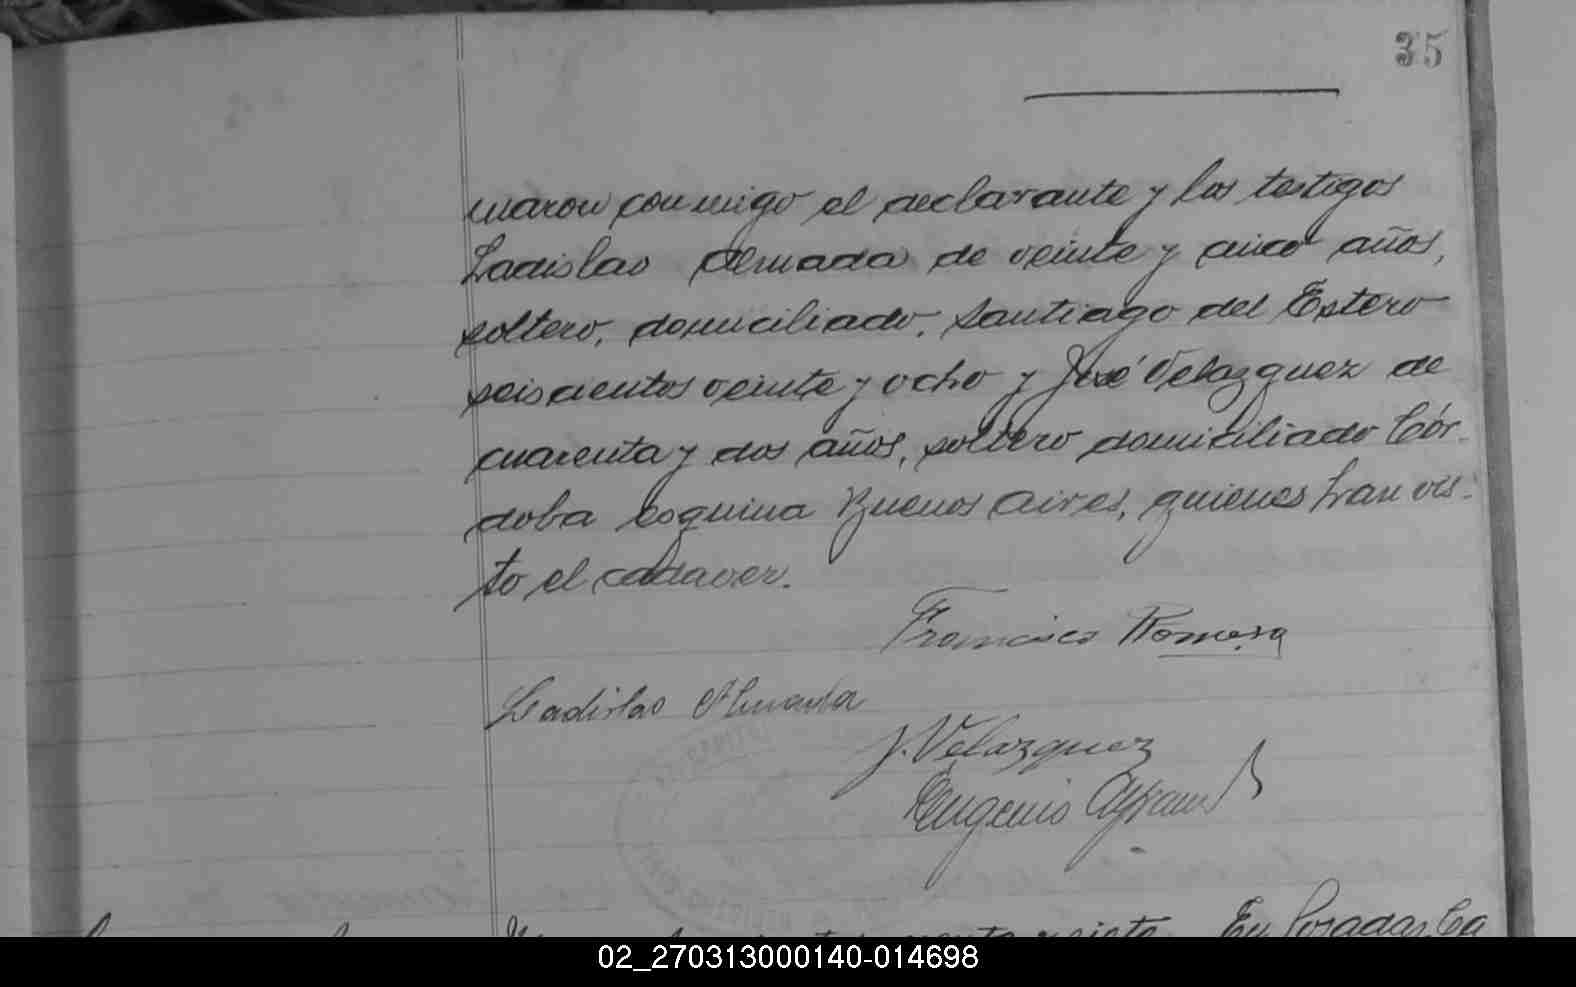 35
maron conmigo el declarante y los testigos
Ladislao Almada de veinte y cinco años,
soltero, domiciliado, Santiago del Estero
seiscientos veinte y ocho y José Velazquez de
cuarenta y dos años, soltero domiciliado Cór-
doba esquina Buenos Aires, quienes han vis-
to el cadaver.
Francisco Romera
Ladislao Almada
J. Velazquez
Eugenio
En Posadas, Ca
02_270313000140-014698